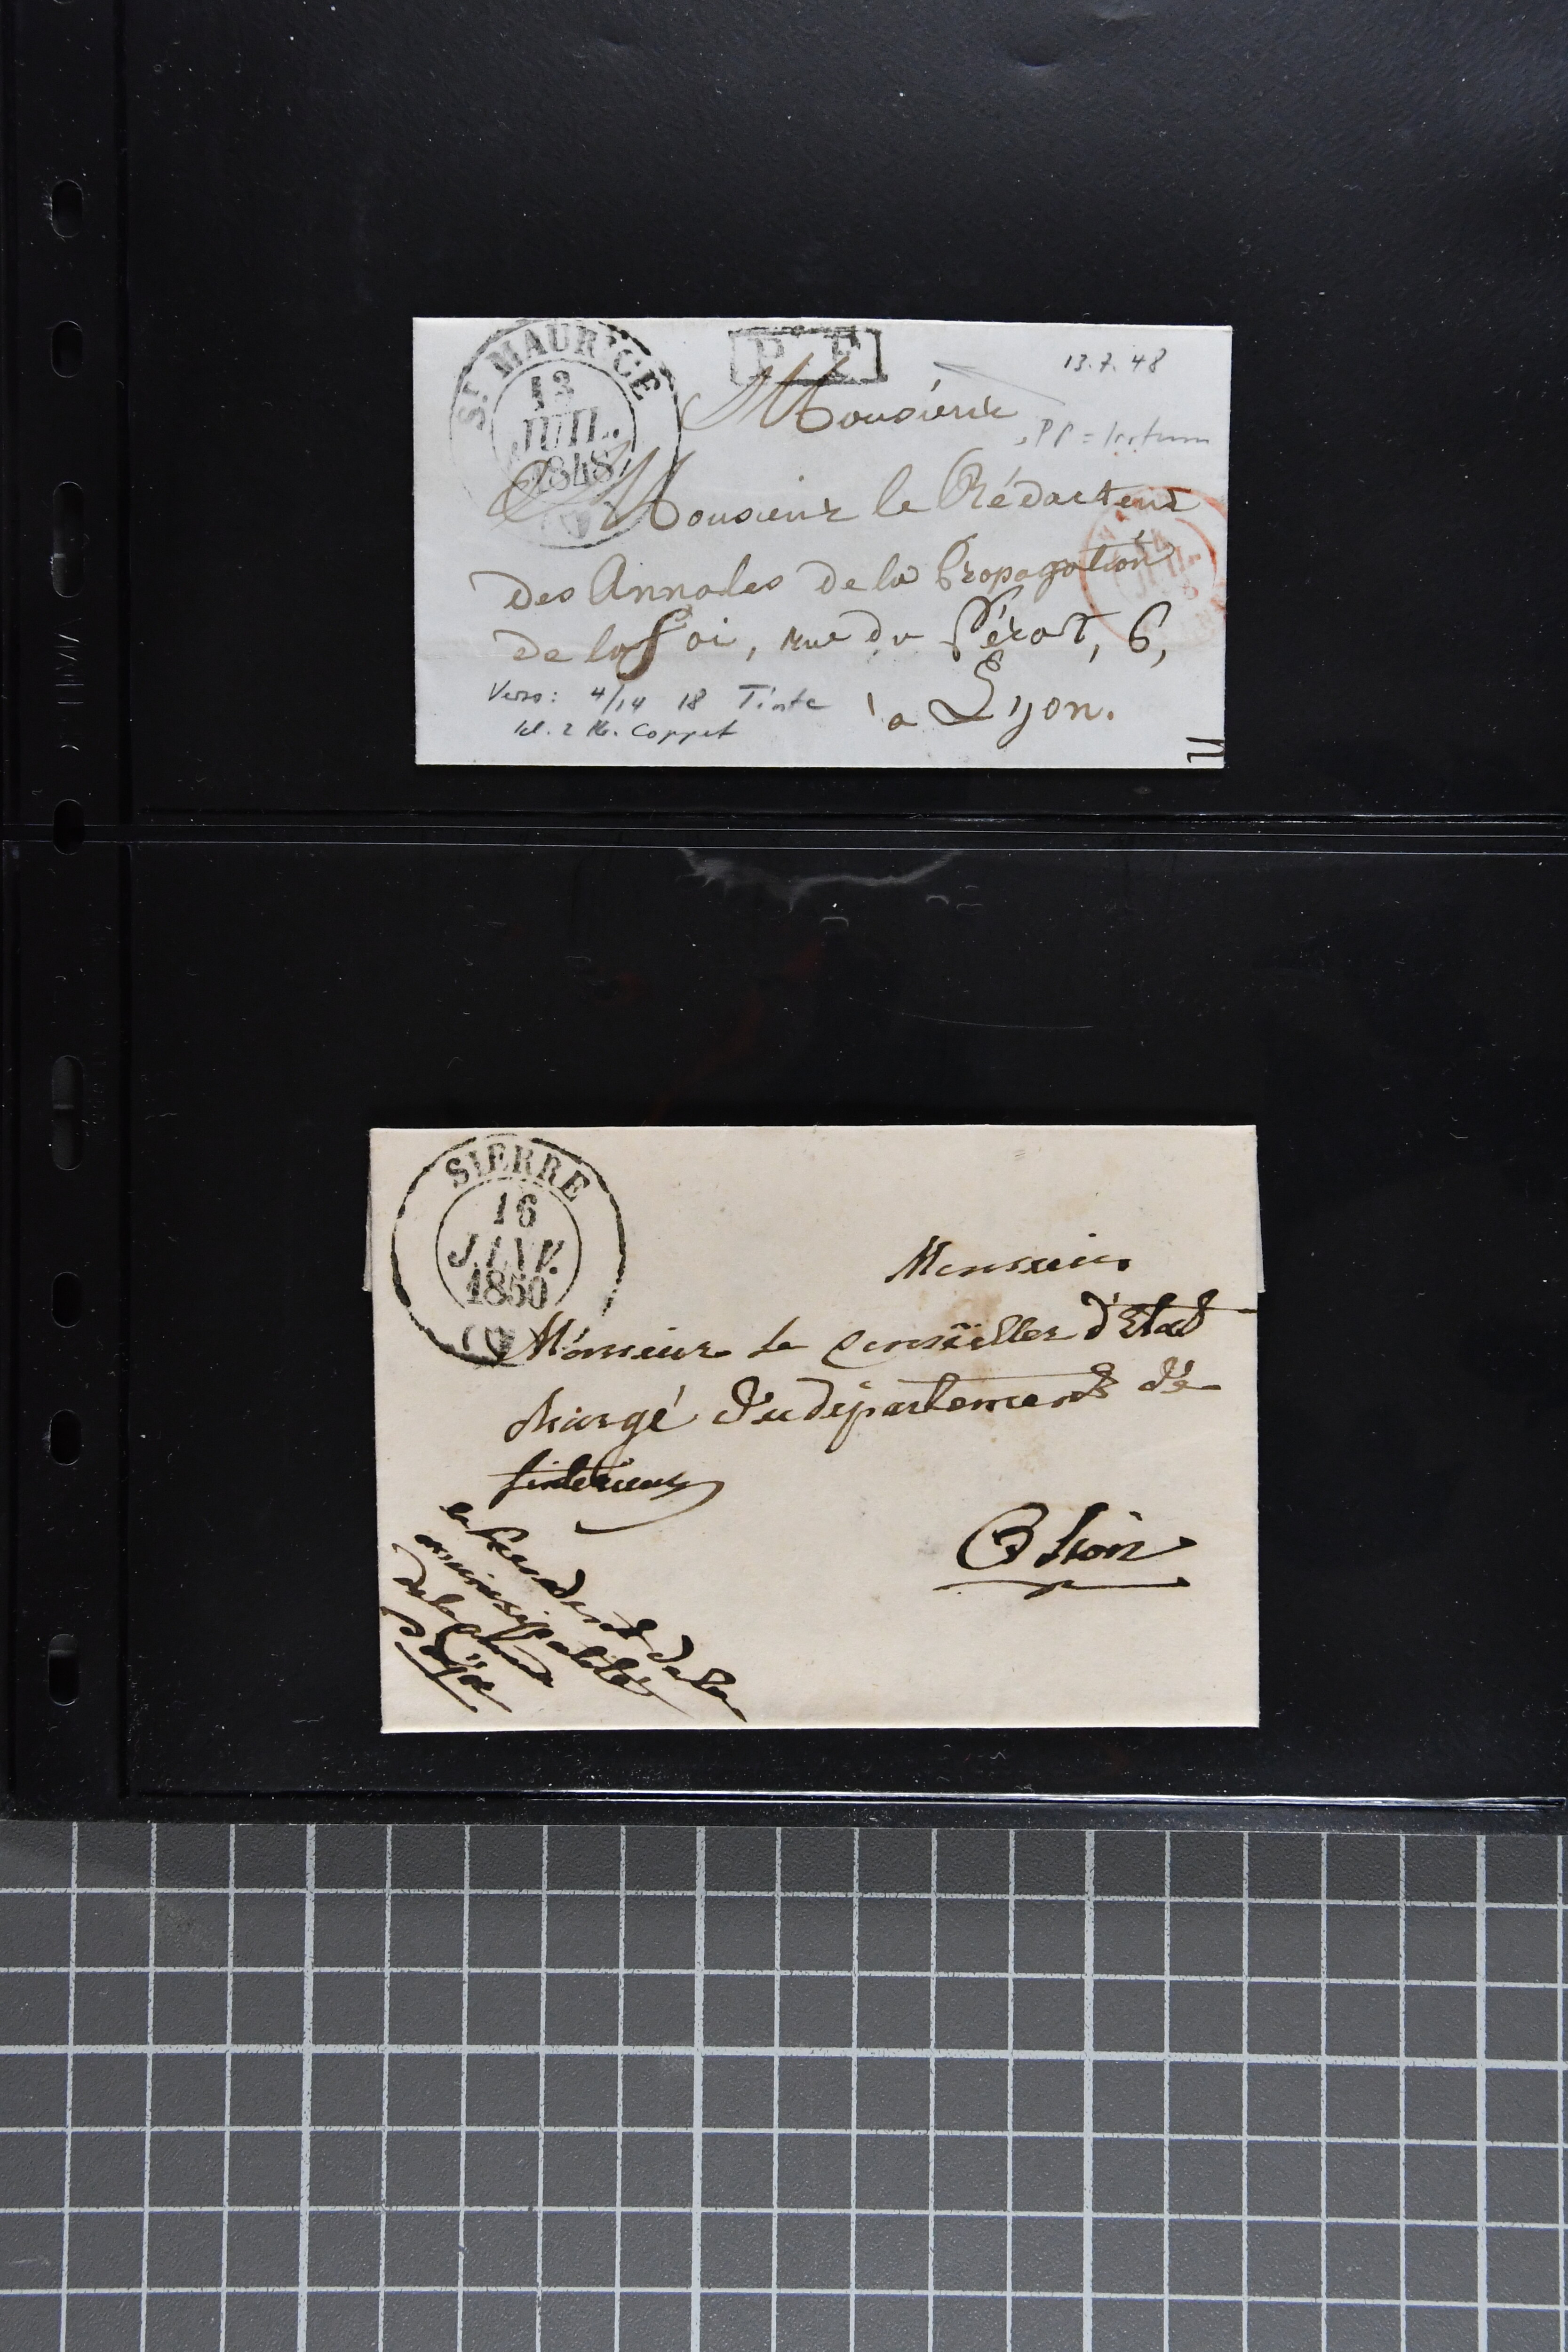 St. MAURICE
13
JUIL.
1848
P. F.
13.7.48
Monsieur
PP =
Monsieur le Rédacteur
des Annales de la Propagation
de la foi, rue du Pérat, 6,
à Lyon.
Verso: 4/14 18 Tinte
kl. 2 Kr. Coppet
SIERRE
16
JANV.
1850
Monsieur
Monsieur le Conseiller d'Etat
chargé du département de
linterieur
Sion
le président de la
municipalité
de